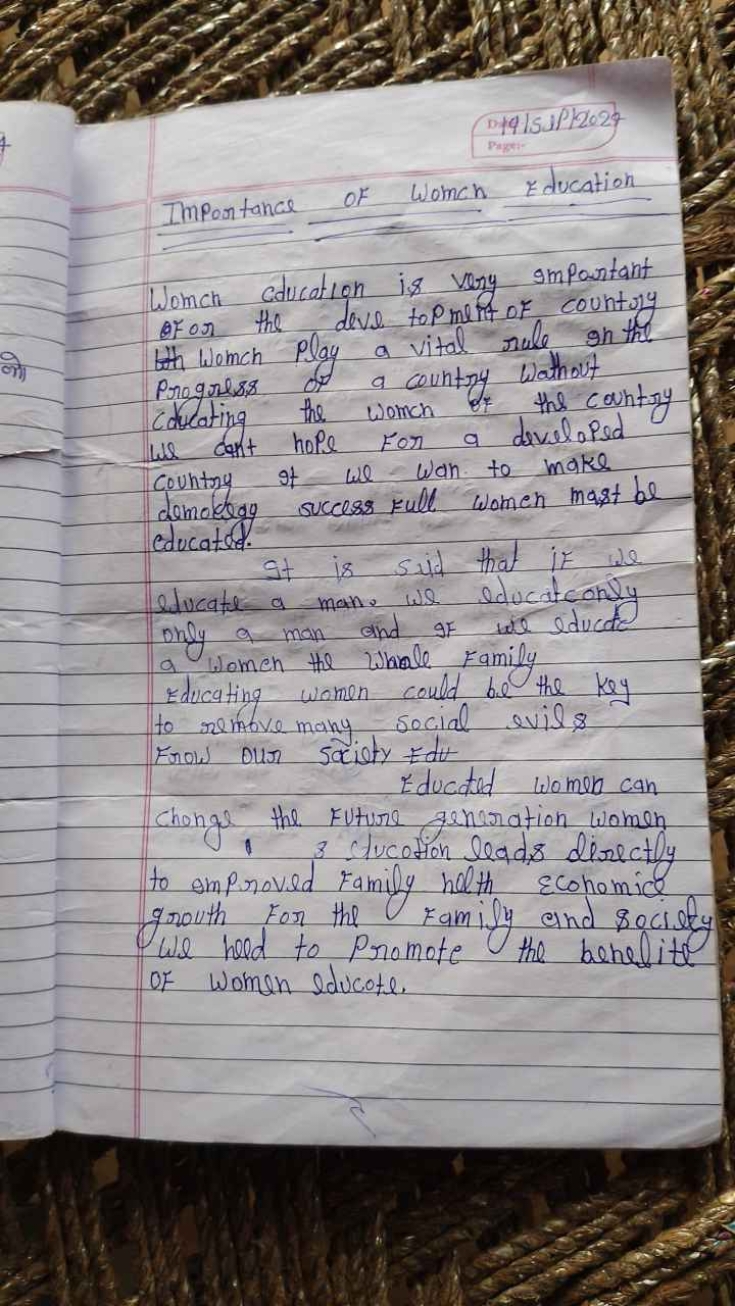 Date 19/SJP/2024
Page:-
Importance OF Women Education
Women education is very important
for the deve topment OF country
Women Play a vital rule in the
Progress of a country Wathout
educating the women of the country
we cant hope For a developed
country If we wan to make
success Full women mast be
educated.
It is said that iF we
educate a man. we educateonly
only a man and IF we educate
a women the Whole Family
Educating women could be the key
to remove many social evils
From Our Society Edu
Educated women can
change the Future generation women
s Educotion leads directly
to improved Family helth Economice
grouth For the Family and society
We need to Promote the benelits
OF women educote.